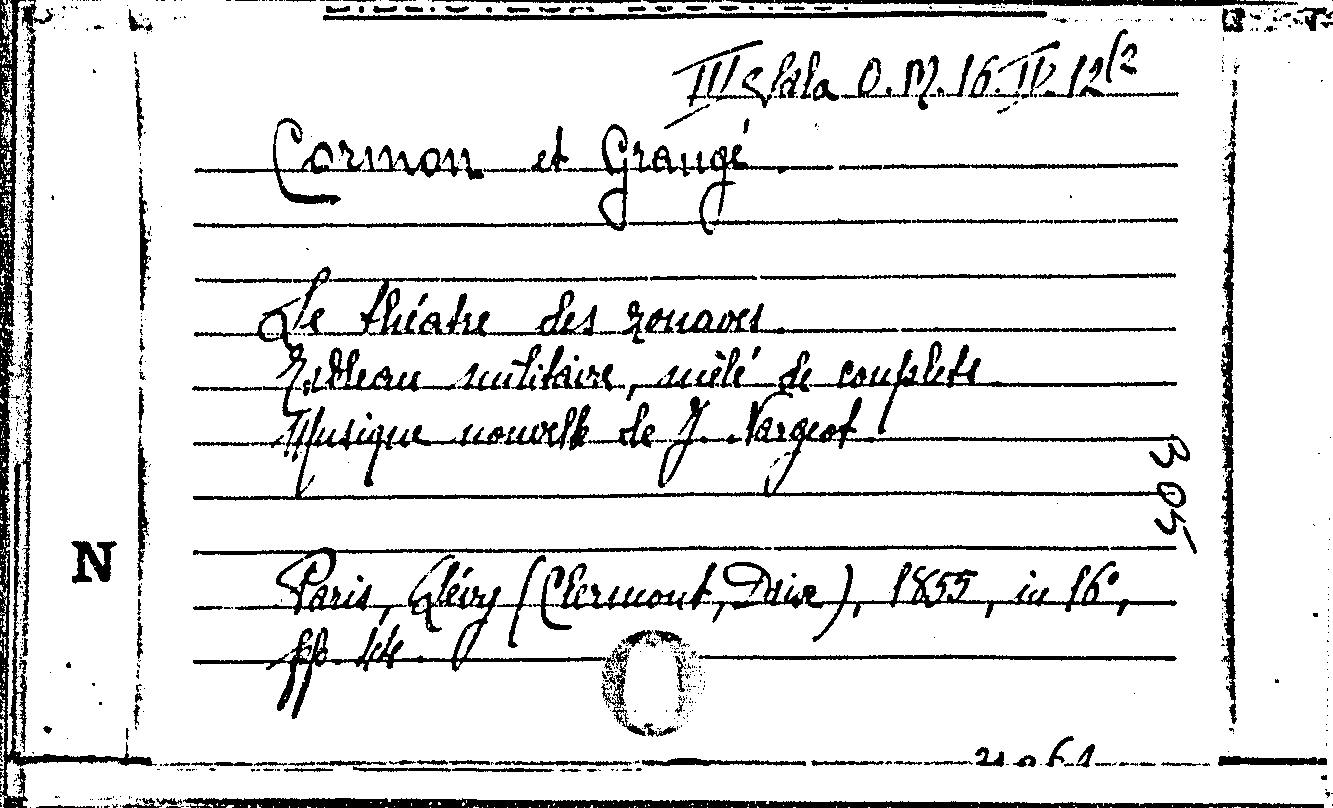 III Sala O. M. 16. IV. 12(2
Cormon et Grangé.
Le théatre des zouaves.
Tableau militaire, mêlé de couplets
Musique nouvelle de J. Nargeot.
305
N
Paris, Lévy (Clermont, Daix), 1855, in 16°,
pp. 44.